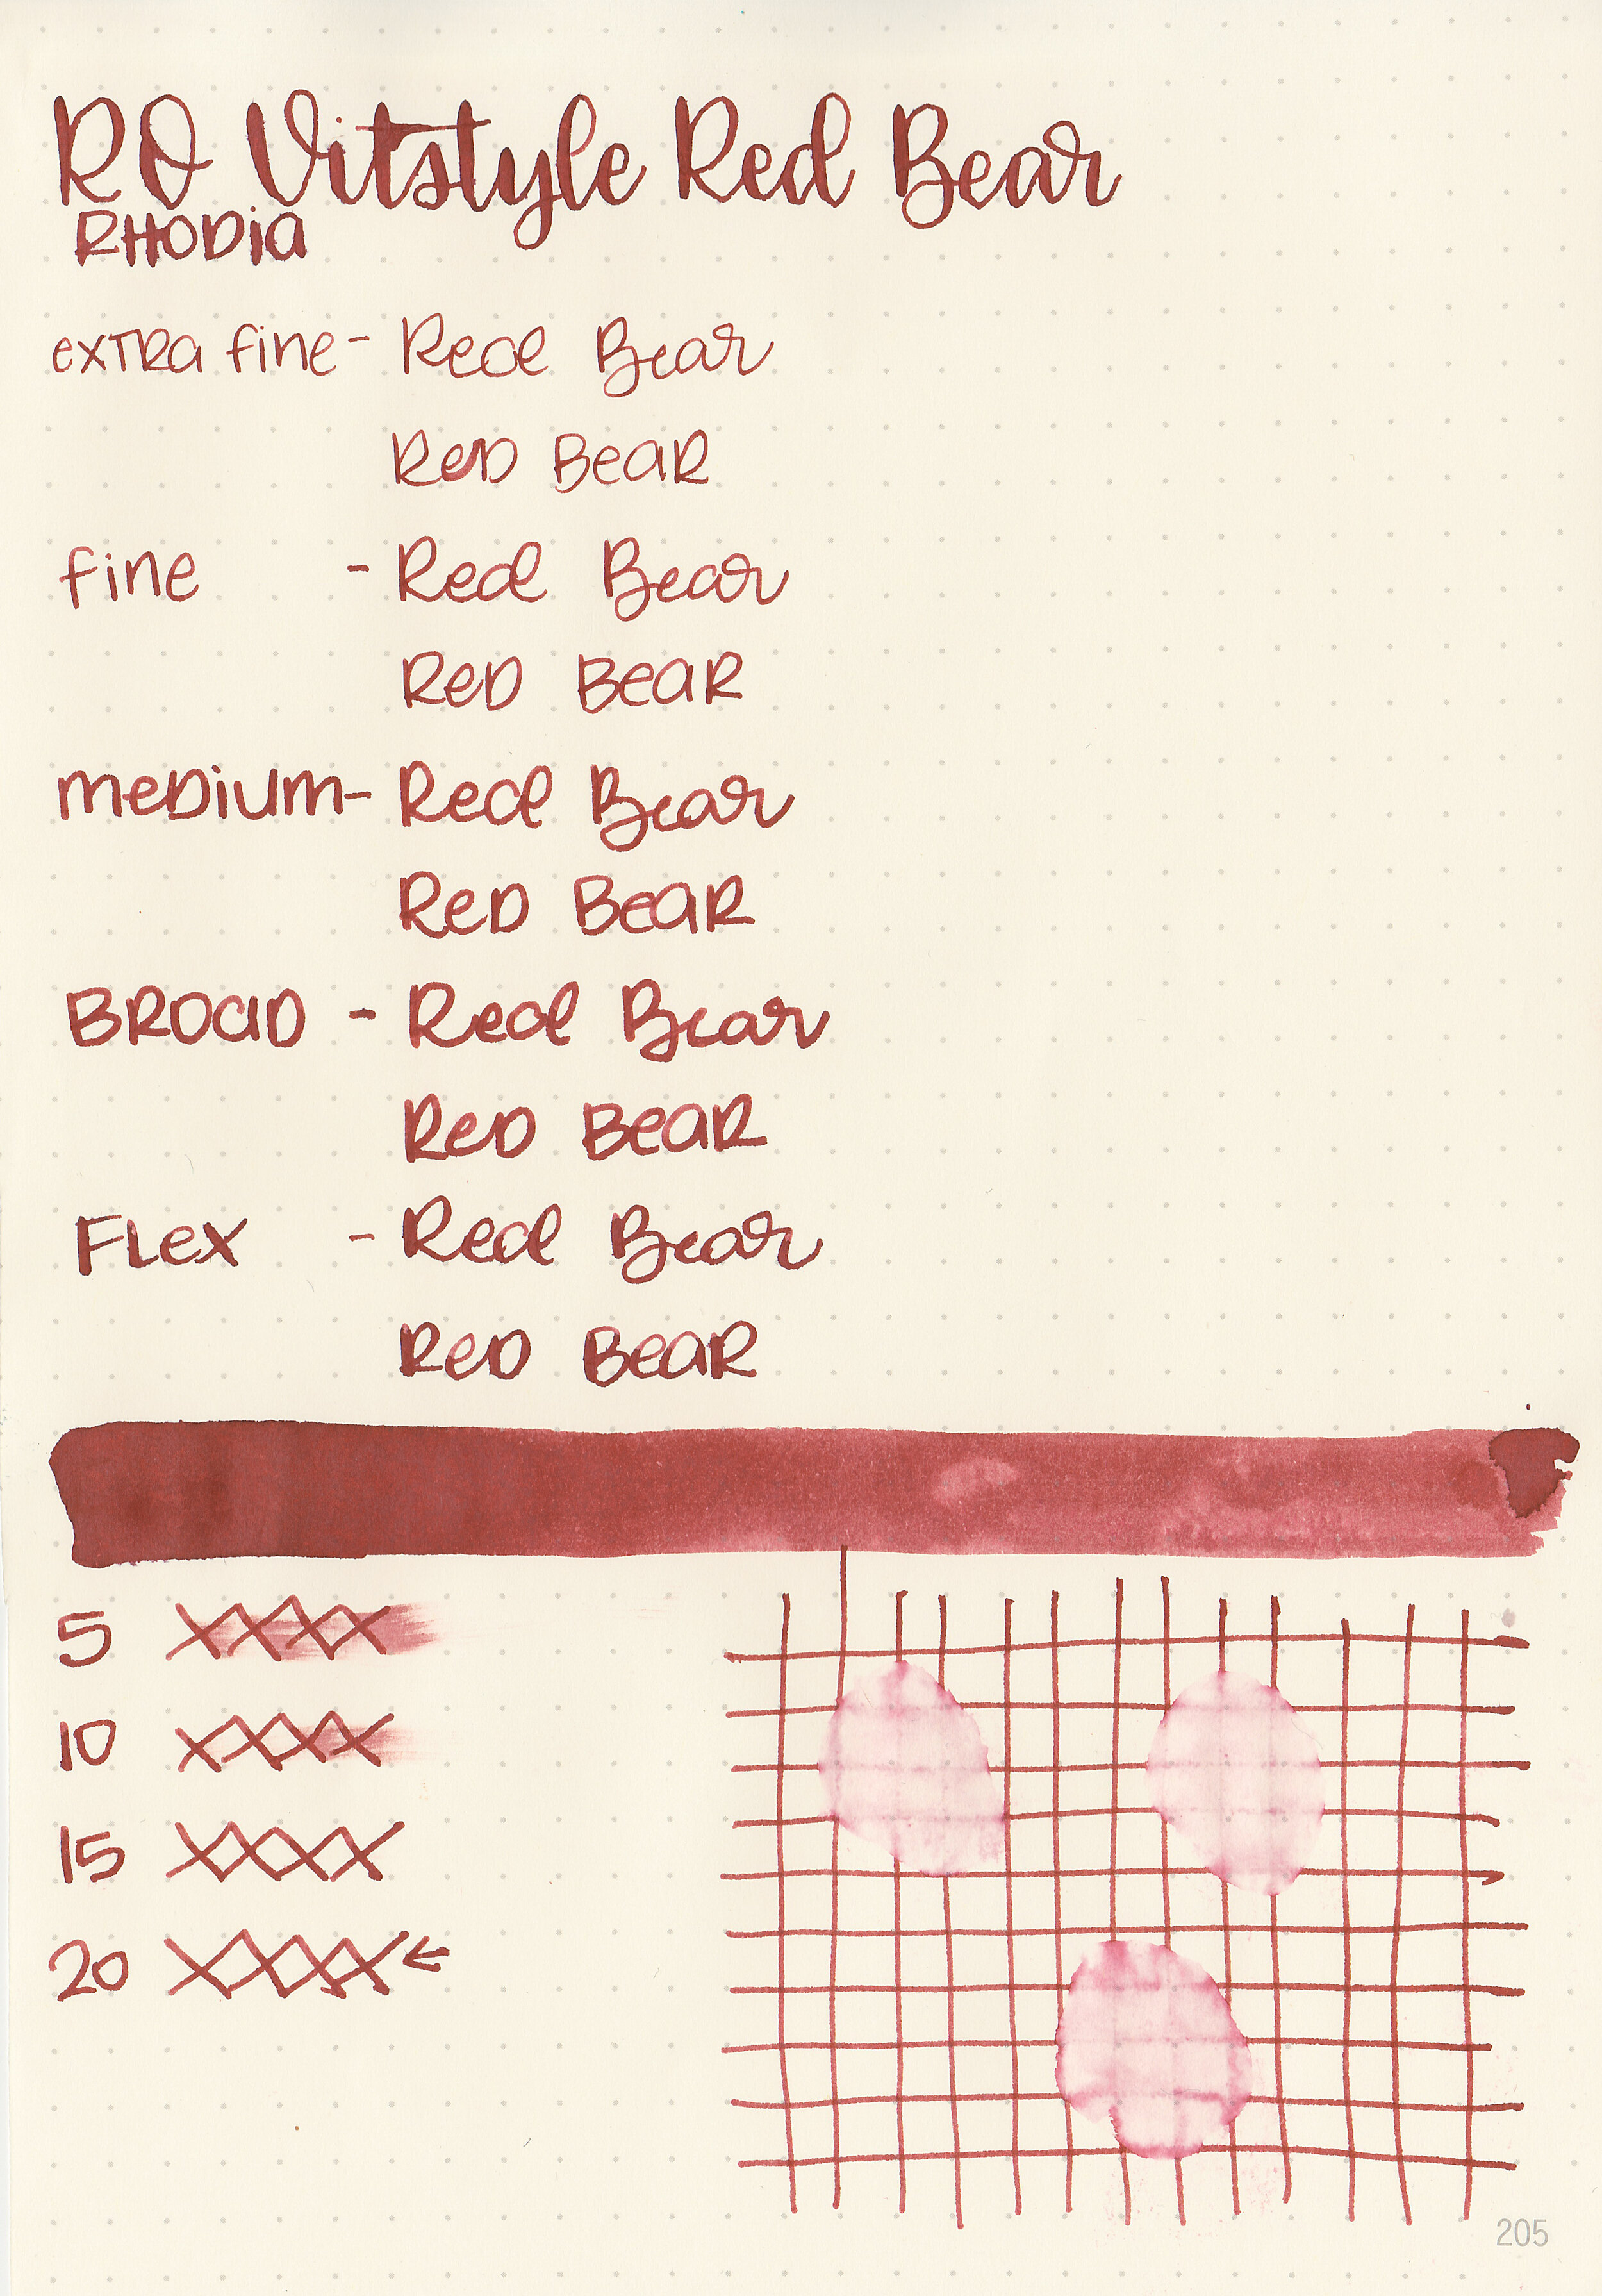 RO Vitstyle Red Bear
RHODIA
extra fine - Red Bear
Red Bear
fine - Red Bear
Red Bear
medium - Red Bear
Red Bear
Broad - Red Bear
Red Bear
Flex - Red Bear
Red Bear
5 XXXX
10 XXXX
15 XXXX
20 XXXX ←
205